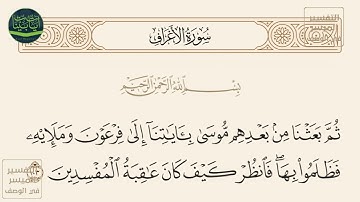 سُورَةُ الأَعْرَافِ
بِسْمِ اللَّهِ الرَّحْمَٰنِ الرَّحِيمِ
ثُمَّ بَعَثْنَا مِنۢ بَعْدِهِم مُّوسَىٰ بِـَٔايَٰتِنَآ إِلَىٰ فِرْعَوْنَ وَمَلَإِيْهِۦ
فَظَلَمُوا۟ بِهَا ۖ فَٱنظُرْ كَيْفَ كَانَ عَٰقِبَةُ ٱلْمُفْسِدِينَ
التفسير
الميسر
في الوصف